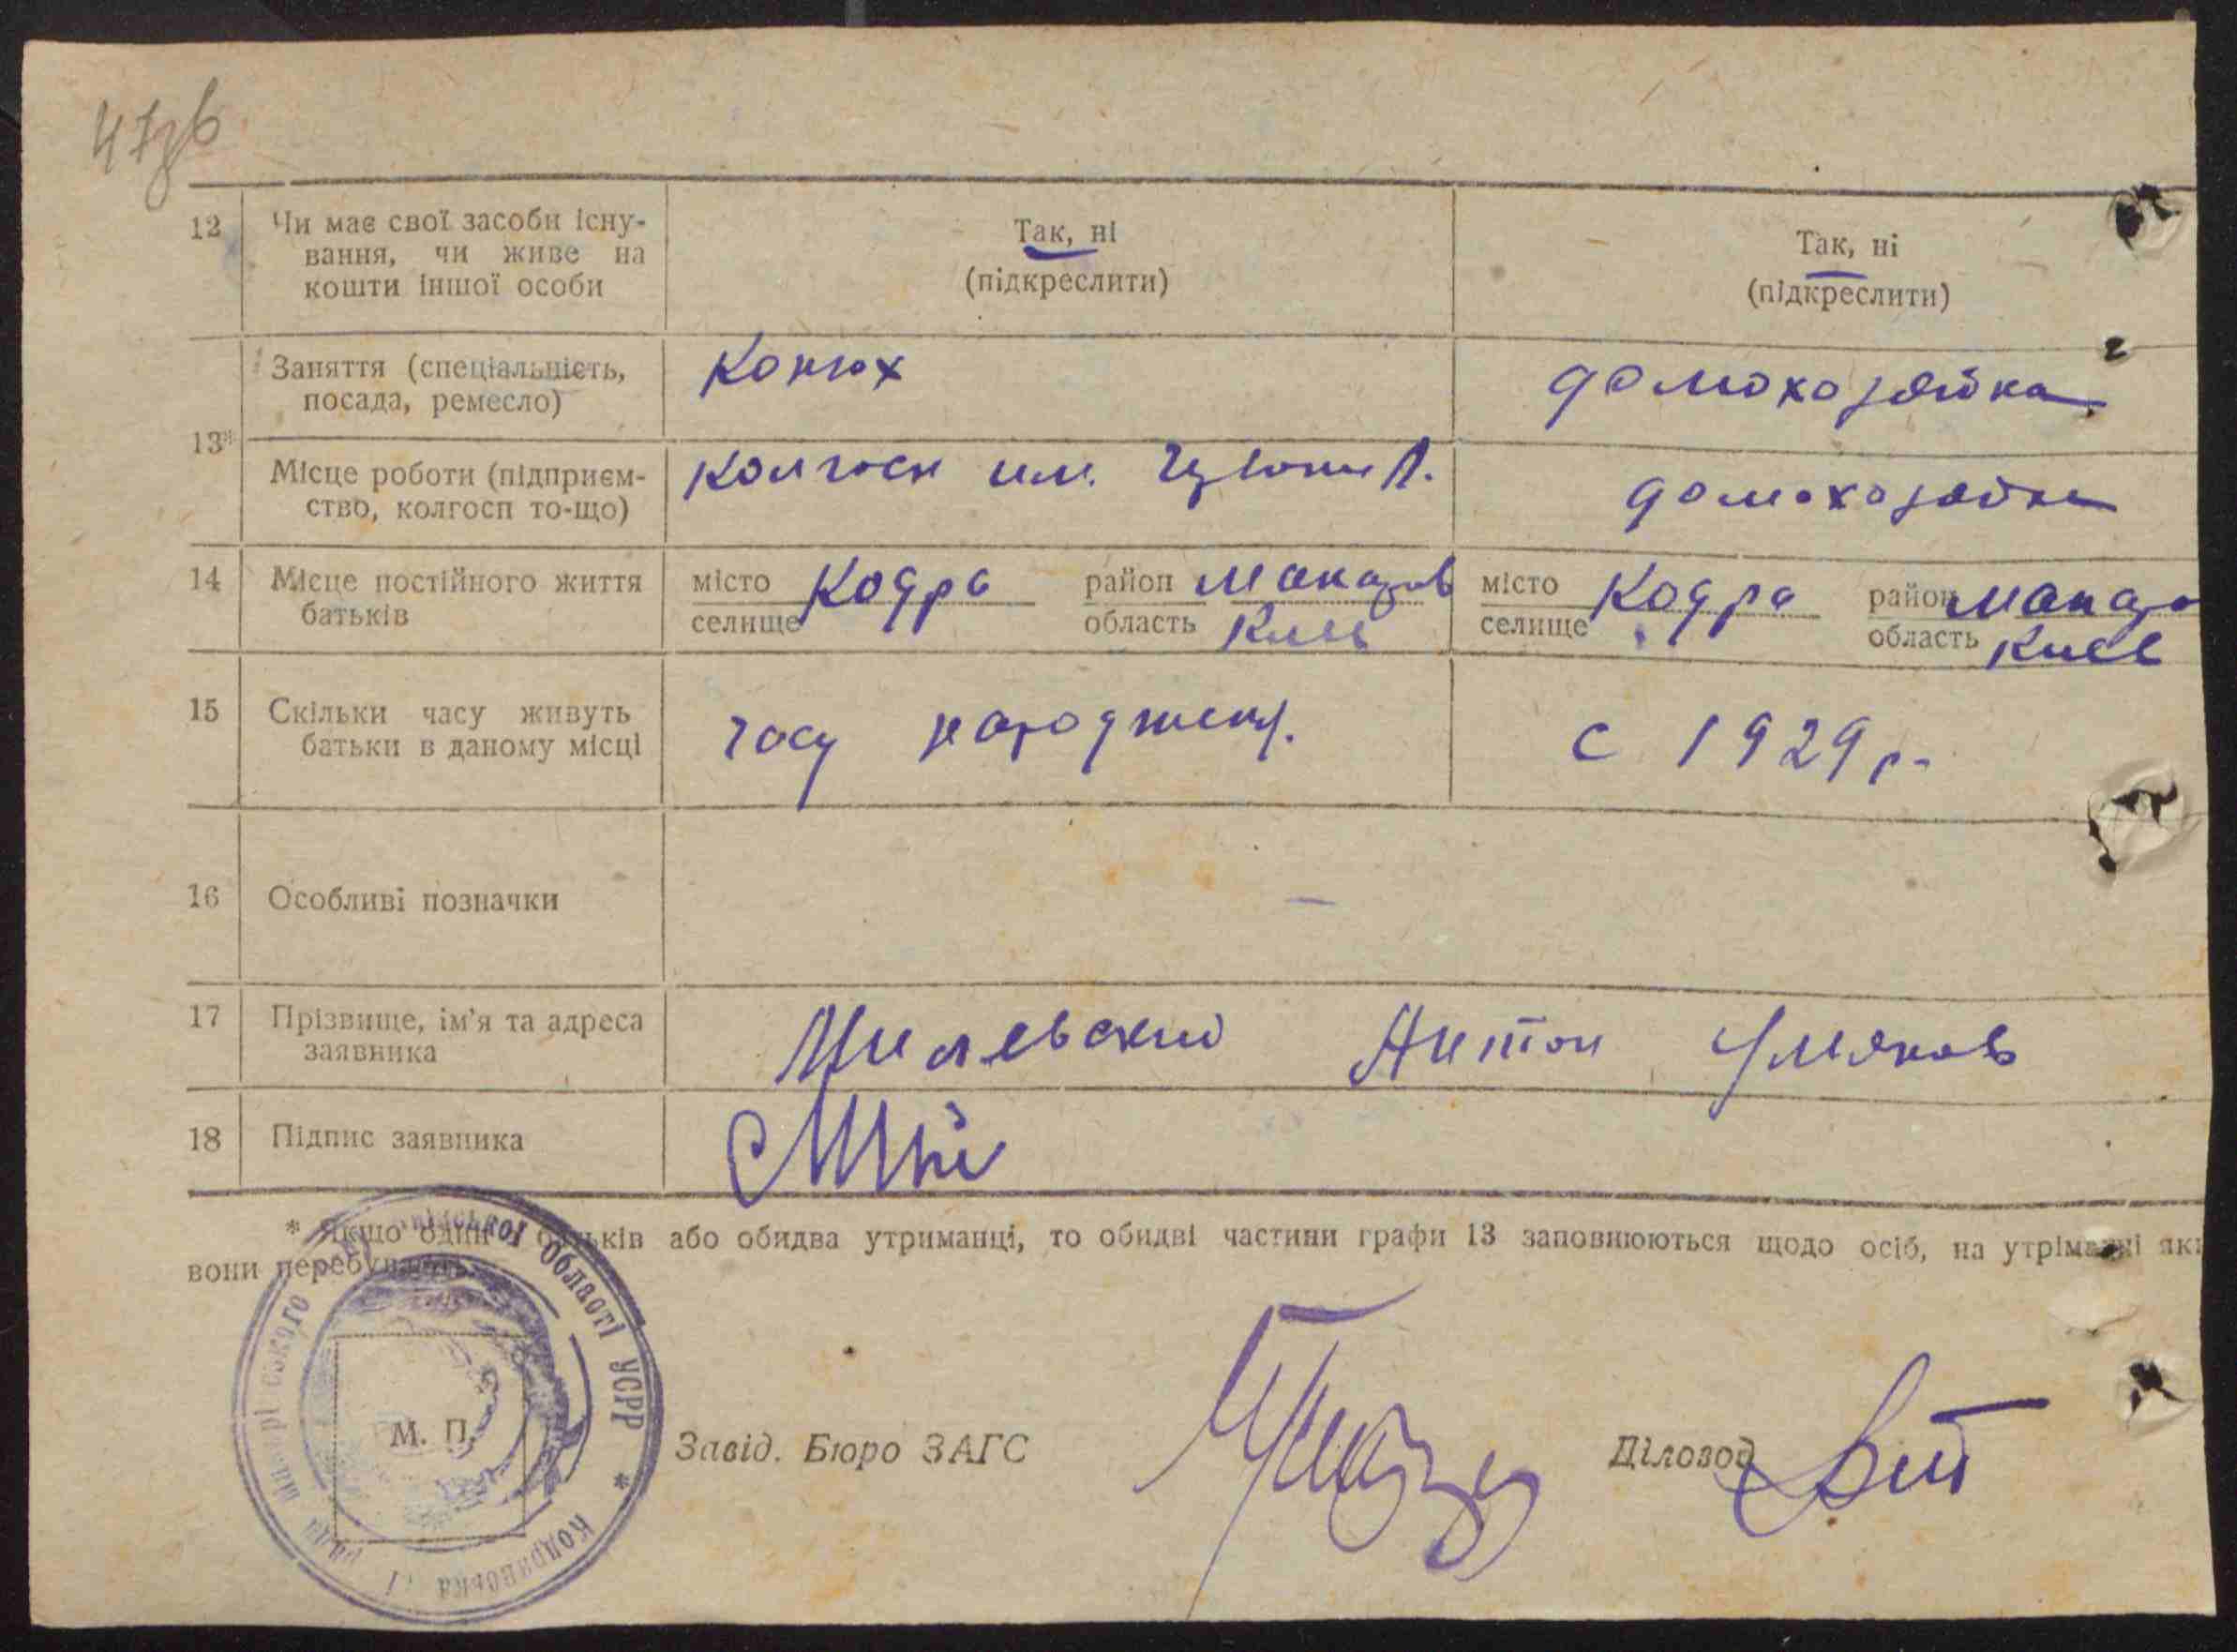 12 Чи має свої засоби існу-
вання, чи живе на
кошти іншої особи
Так, ні
(підкреслити)
Так, ні
(підкреслити)
13*
Заняття (спеціальність,
посада, ремесло)
Конюх
домохозяйка
Місце роботи (підприєм-
ство, колгосп то-що)
колгосп им.
домохозяйка
14 Місце постійного життя
батьків
місто
селище
Кодра
район Макаров
область Киев
місто
селище
Кодра
район Макаро
область Киев
15 Скільки часу живуть
батьки в даному місці
часу народжен.
с 1929 р.
16 Особливі позначки
–
17 Прізвище, ім'я та адреса
заявника
Милевский Антон
18 Підпис заявника
* Якщо один з батьків або обидва утриманці, то обидві частини графи 13 заповнюються щодо осіб, на утріманні яки
вони перебувають.
області УСРР * Кодрянська
рада
М. П.
Завід. Бюро ЗАГС
Діловод